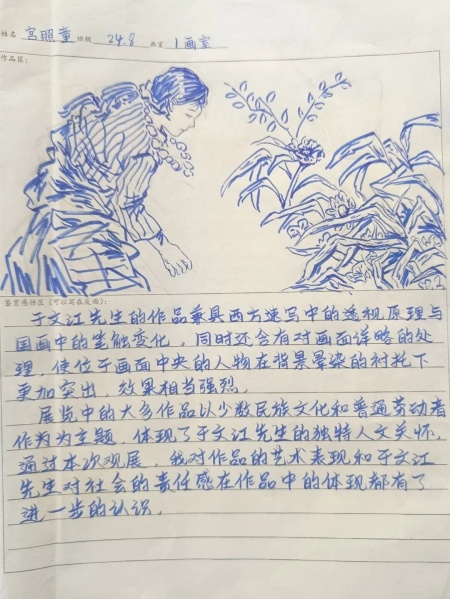 姓名 宫照童 班级 24.8 画室 1画室
作品区：
鉴赏感悟区（可以写在反面）：
于文江先生的作品兼具西方速写中的透视原理与
国画中的笔触变化，同时还含有对画面详略的处
理，使位于画面中央的人物在背景晕染的衬托下
更加突出，效果相当强烈。
展览中的大多作品以少数民族文化和普通劳动者
作为为主题，体现了于文江先生的独特人文关怀，
通过本次观展，我对作品的艺术表现和于文江
先生对社会的责任感在作品中的体现都有了
进一步的认识。